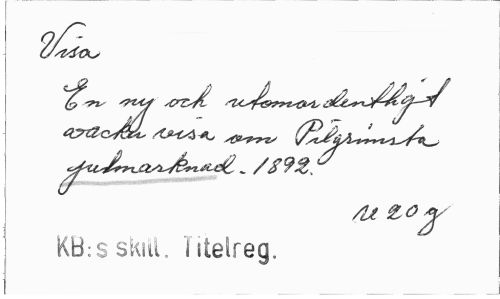 Visa
En ny och utomordenthigt
wacker visa om Pilgrimsta
julmarknad. 1892.
U 20 g
KB:s skill. Titelreg.